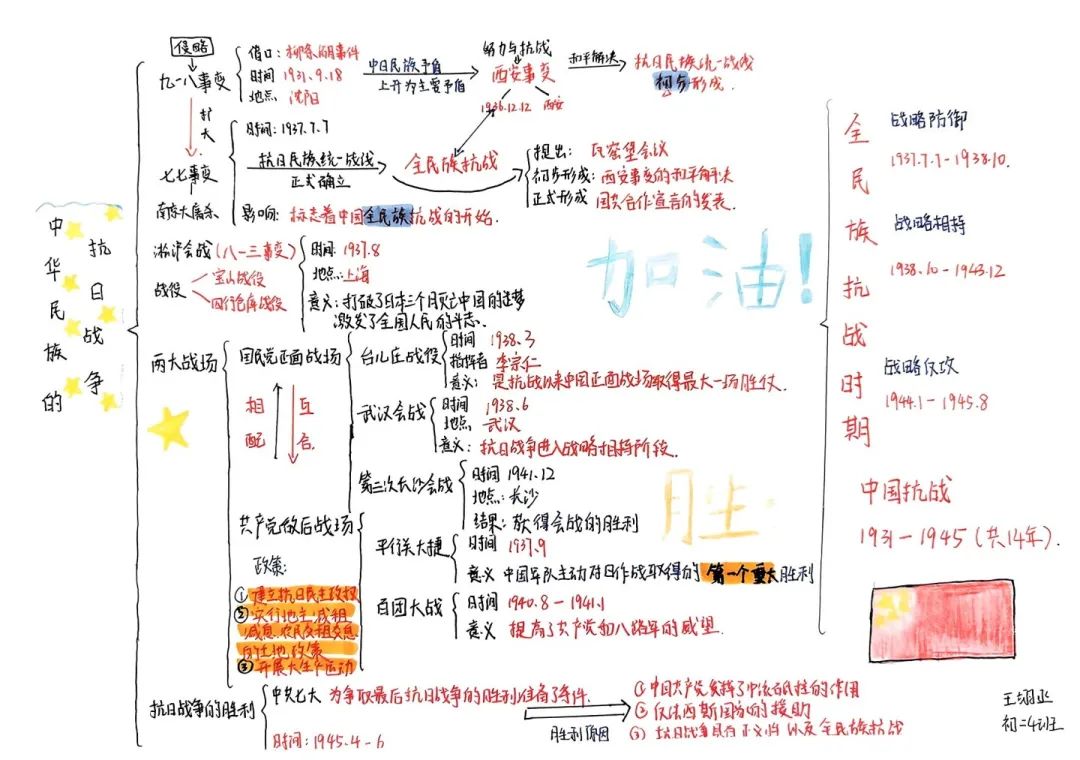 中华民族的
抗日战争
侵略
九一八事变
借口：柳条湖事件
时间 1931.9.18
地点：沈阳
中日民族矛盾
上升为主要矛盾
努力与抗战
西安事变
1936.12.12 西安
和平解决
抗日民族统一战线
初步形成.
扩大
七七事变
南京大屠杀
时间：1937.7.7
抗日民族统一战线
正式确立
全民族抗战
提出：瓦窑堡会议
初步形成：西安事变的和平解决
正式形成 国共合作宣言的发表.
影响：标志着中国全民族抗战的开始.
淞沪会战(八一三事变)
战役
宝山战役
四行仓库战役
时间：1937.8
地点：上海
意义：打破了日本三个月灭亡中国的迷梦
激发了全国人民的斗志.
两大战场
国民党正面战场
相互
配合
台儿庄战役
时间 1938.3
指挥者 李宗仁
意义：是抗战以来中国正面战场取得最大一场胜仗.
武汉会战
时间 1938.6
地点：武汉
意义：抗日战争进入战略相持阶段.
第三次长沙会战
时间 1941.12
地点：长沙
结果：获得会战的胜利
共产党敌后战场
政策：
①建立抗日民主政权
②实行地主减租
减息,农民交租交息
的土地政策
③开展大生产运动
平型关大捷
时间 1937.9
意义 中国军队主动对日作战取得的第一个重大胜利
百团大战
时间 1940.8-1941.1
意义 提高了共产党和八路军的威望.
抗日战争的胜利
中共七大 为争取最后抗日战争的胜利准备了条件.
时间：1945.4-6
胜利原因
①中国共产党发挥了中流砥柱的作用
②反法西斯国家的援助
③抗日战争具有正义性以及全民族抗战
加油！
胜
全民族抗战时期
战略防御
1937.7.7-1938.10.
战略相持
1938.10-1943.12
战略反攻
1944.1-1945.8
中国抗战
1931-1945(共14年).
王翊业
初二4班